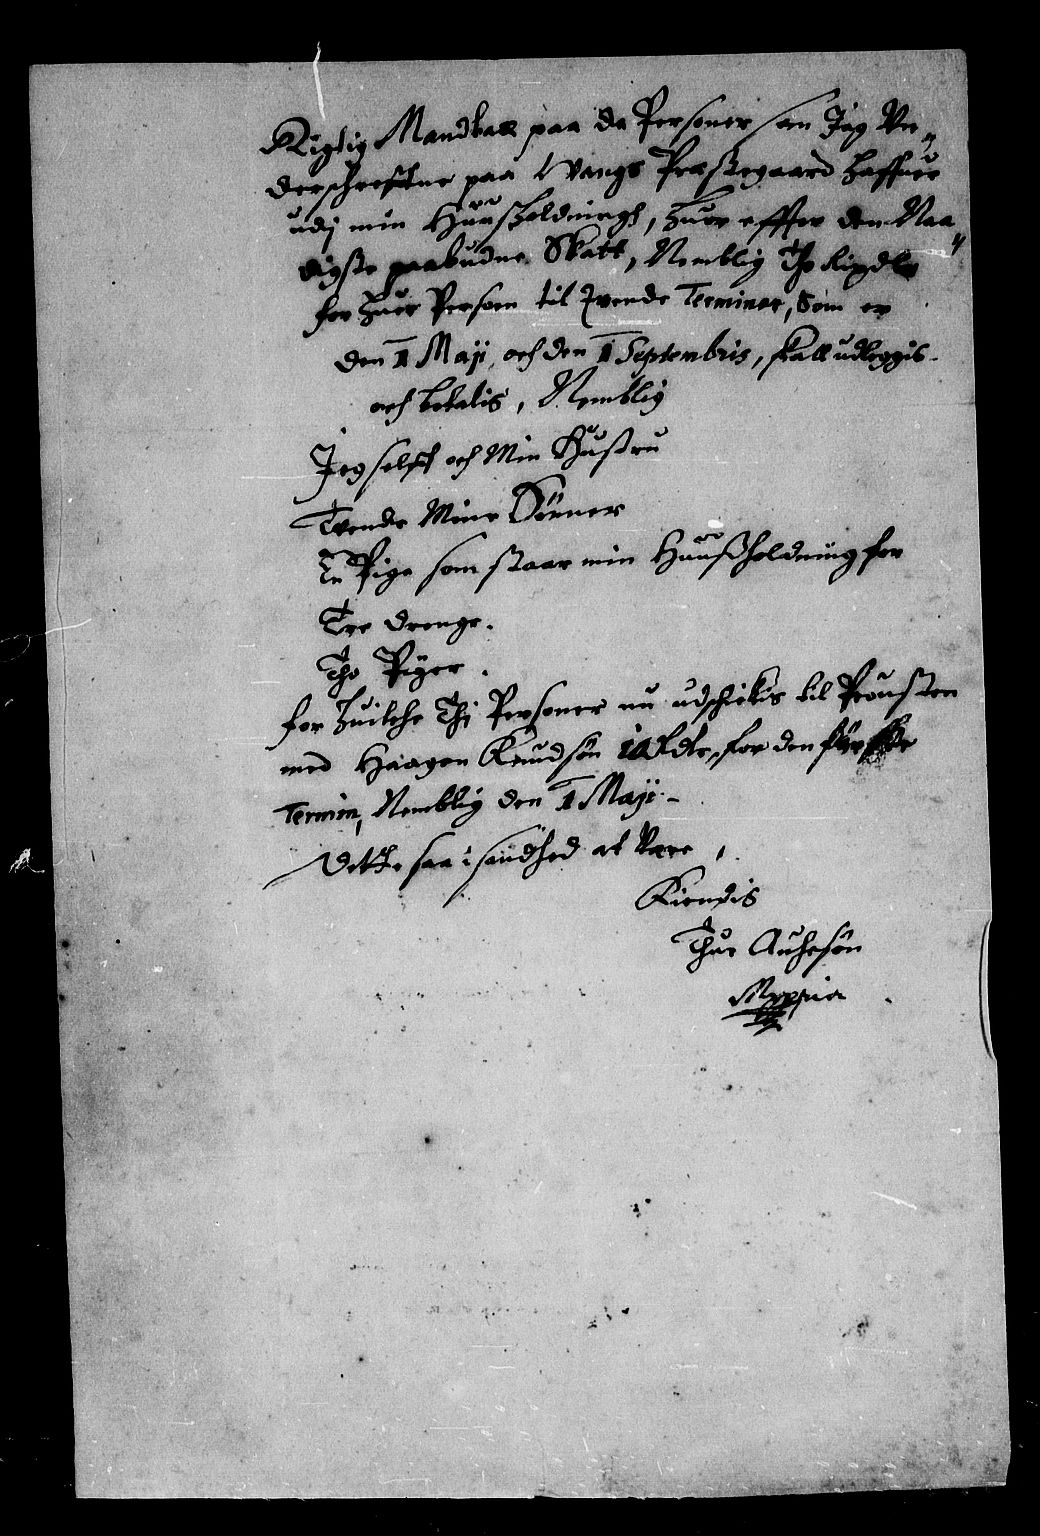 Rigtig Mandtall paa de Personer som Jeg Vn„
derschreffne paa Wangs Præstegaard haffuer
udj min Hüüsholdningh, huor effter den Naa„
digste paabudne Skatt, Nemblig Tho Rixdlr
for huer Person til Tvende Terminer, Som er
den 1 Maji, och den 1 Septembris, skall udleggis
och betalis, Nemblig
Jeg selff och Min Hustru
Tvende Mine Sönner
En Pige som staar min Hüüsholdning for
Tre drenge.
Tho Piger.
for huilche Thj Personer nu udschickis til Prousten
med Haagen Knudsön 10 Rdlr, for den förste
Termin, Nemblig den 1 Maji.
Dette saa i sandhed at Være,
Kiendis
Thue Auhesön
Mppria